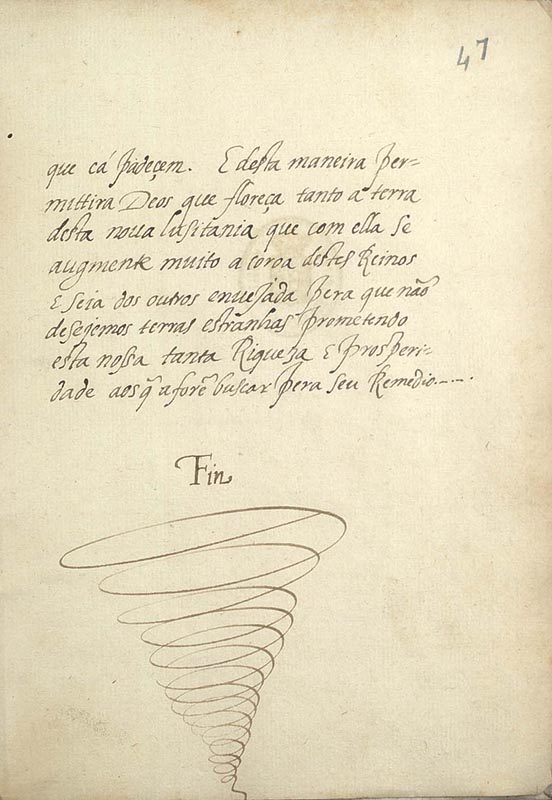 47
que cá padeçem. E desta maneira per-
mittira Deos que floreça tanto a terra
desta noua lusitania que com ella se
augmente muito a coroa destes Reinos
E seia dos outros enueJada pera que não
desejemos terras estranhas prometendo
esta nossa tanta Riqueza E prosperi-
dade aos q̃ a forẽ buscar pera seu Remedio.---.
Fin